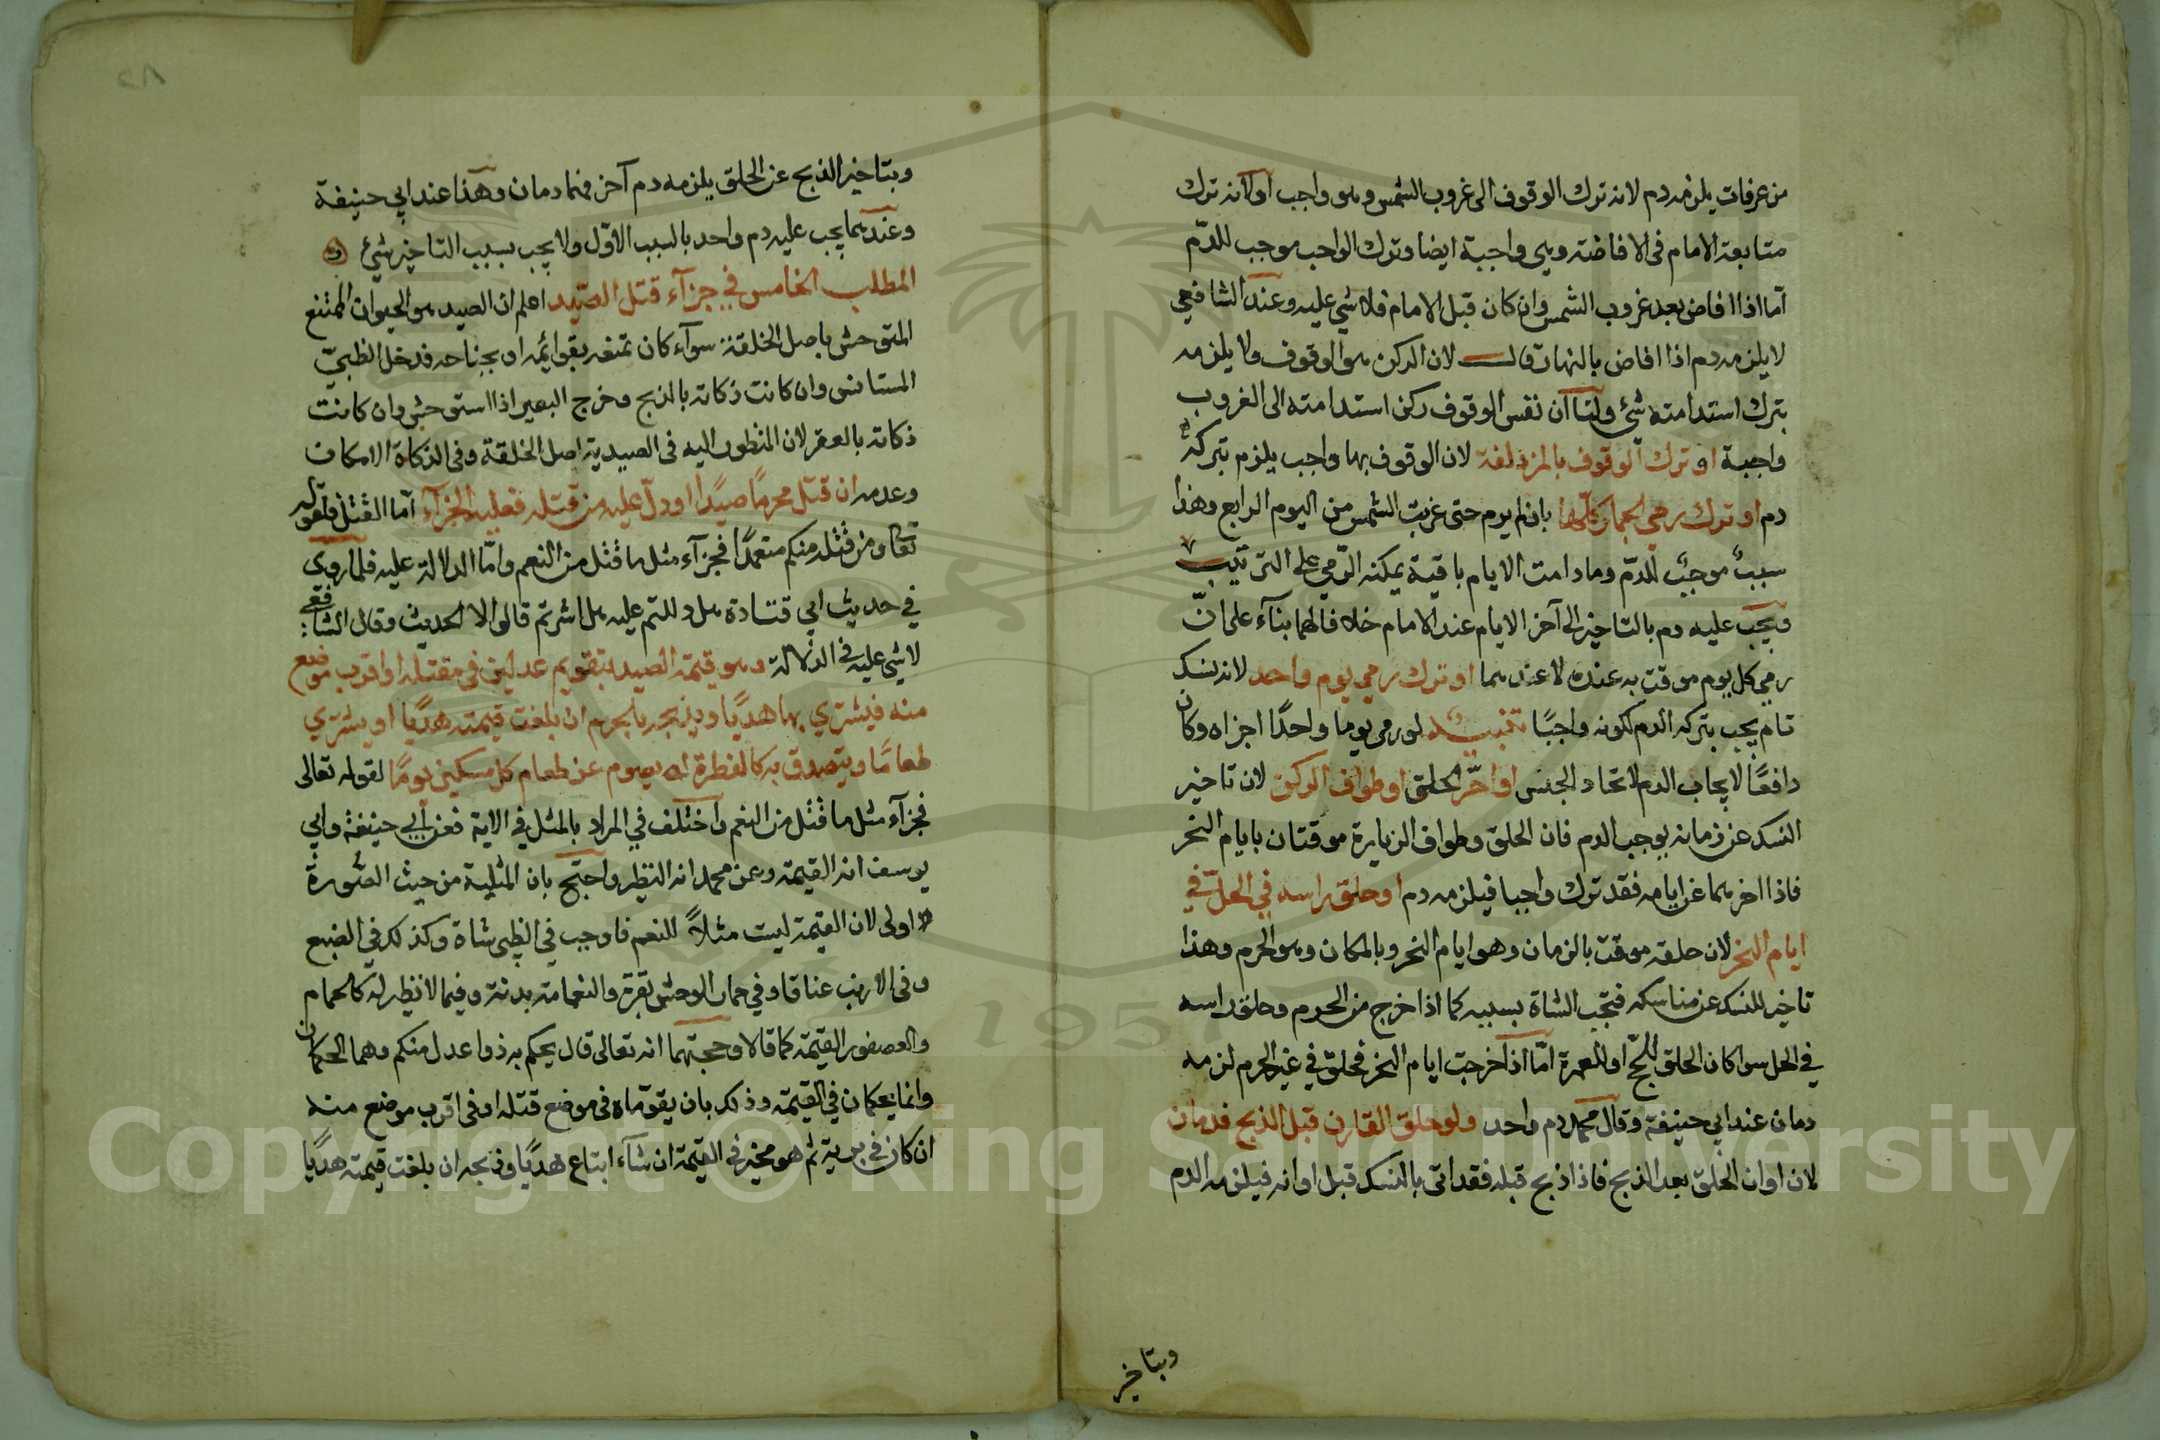 من عرفات يلزمه دم لانه ترك الوقوف الى غروب الشمس وهو واجب او لانه ترك
متابعة الامام فى الافاضة وهى واجبة ايضا وترك الواجب موجب للدّم
اما اذا افاض بعد غروب الشمس وان كان قبل الامام فلا شي عليه وعند الشافعي
لا يلزمه دم اذا افاض بالنهار قال لان الركن هو الوقوف ولا يلزمه
بترك استدامته شئ ولنا ان نفس الوقوف ركن استدامته الى الغروب
واجبة او ترك الوقوف بالمزدلفة لان الوقوف بها واجب يلزم بتركه
دم او ترك رمي الجمار كلّها بان لم يرم حتى غربت الشمس من اليوم الرابع وهذا
سببٌ موجبٌ للدّم وما دامت الايام باقية يمكنه الرّمي على الترتيب
فيجب عليه دم بالتاخير الى آخر الايام عند الامام خلافا لهما بنآء على انّ
رمي كل يوم موقت به عنده لا عندهما او ترك رمي يوم واحد لانه نسك
تام يجب بتركه الدم لكونه واجبًا تنبيه لو رمى يوما واحدًا اجزاه وكان
دافعًا لايجاب الدم لاتحاد الجنس او اخّر الحلق او طواف الركن لان تاخير
النسك عن زمانه يوجب الدم فان الحلق وطواف الزيارة موقتان بايام النحر
فاذا اخرهما عن ايامه فقد ترك واجبا فيلزمه دم او حلق راسه في الحلّ في
ايام النحر لان حلقه موقت بالزمان وهو ايام النحر وبالمكان وهو الحرم وهذا
تاخير للنسك عن مناسكه فتجب الشاة بسببه كما اذا خرج من الحرم وحلق راسه
في الحل سوا كان الحلق للحجّ او للعمرة امّا اذا خرجت ايام النحر فحلق في غير الحرم لزمه
دمان عند ابي حنيفة وقال محمد دم واحد ولو حلق القارن قبل الذبح فدمان
لان اوان الحلق بعد الذبح فاذا ذبح قبله فقد اتى بالنسك قبل اوانه فيلزمه الدم
وبتاخير
وبتاخير الذبح عن الحلق يلزمه دم آخر فهما دمان وهذا عند ابي حنيفة
وعندهما يجب عليه دم واحد بالسبب الاوّل ولا يجب بسبب التاخير شئ
المطلب الخامس في جزآء قتل الصّيد اعلم ان الصيد هو الحيوان الممتنع
المتوحش باصل الخلقة سوآء كان تمنعه بقوائمه او بجناحه فدخل الظبيّ
المستانس وان كانت ذكاته بالذبح وخرج البعير اذا استوحش وان كانت
ذكاته بالعقر لان المنظور اليه فى الصيدية اصل الخلقة وفى الذكاة الامكان
وعدمه ان قتل محرمًا صيدًا او دلّ عليه من قتله فعليه الجزآء امّا القتل فلقوله
تعالى ومن قتله منكم متعمدًا فجزآء مثل ما قتل من النعم وامّا الدلالة عليه فلما روي
في حديث ابي قتادة هل دللتم عليه هل اشرتم قالوا لا الحديث وقال الشافعي
لا شي عليه في الدلالة وهو قيمة الصيد بتقويم عدلين في مقتله او اقرب موضع
منه فيشتري بها هديًا ويذبحه بالحرم ان بلغت قيمته هديًا او يشتري
طعامًا ويتصدق به كالفطرة او يصوم عن طعام كل مسكين يومًا لقوله تعالى
فجزآء مثل ما قتل من النعم واختلف في المراد بالمثل في الاية فعن ابي حنيفة وابي
يوسف انه القيمة وعن محمد انه النظير واحتج بان المثلية من حيث الصّورة
اولى لان القيمة ليست مثلاً للنعم فاوجب في الظبي شاة وكذلك في الضبع
وفى الارنب عناقا وفي حمار الوحش بقرة والنعامة بدنة وفيما لا نظير له كالحمام
والعصفور القيمة كما قالا وحجتهما انه تعالى قال يحكم به ذوا عدل منكم وهما الحكمان
وانما يحكمان في القيمة وذلك بان يقوّماه فى موضع قتله او فى اقرب موضع منه
ان كان في برية ثم هو مخير في القيمة ان شآء ابتاع هديًا وذبحه ان بلغت قيمته هديًا
Copyright © King Saud University
1957